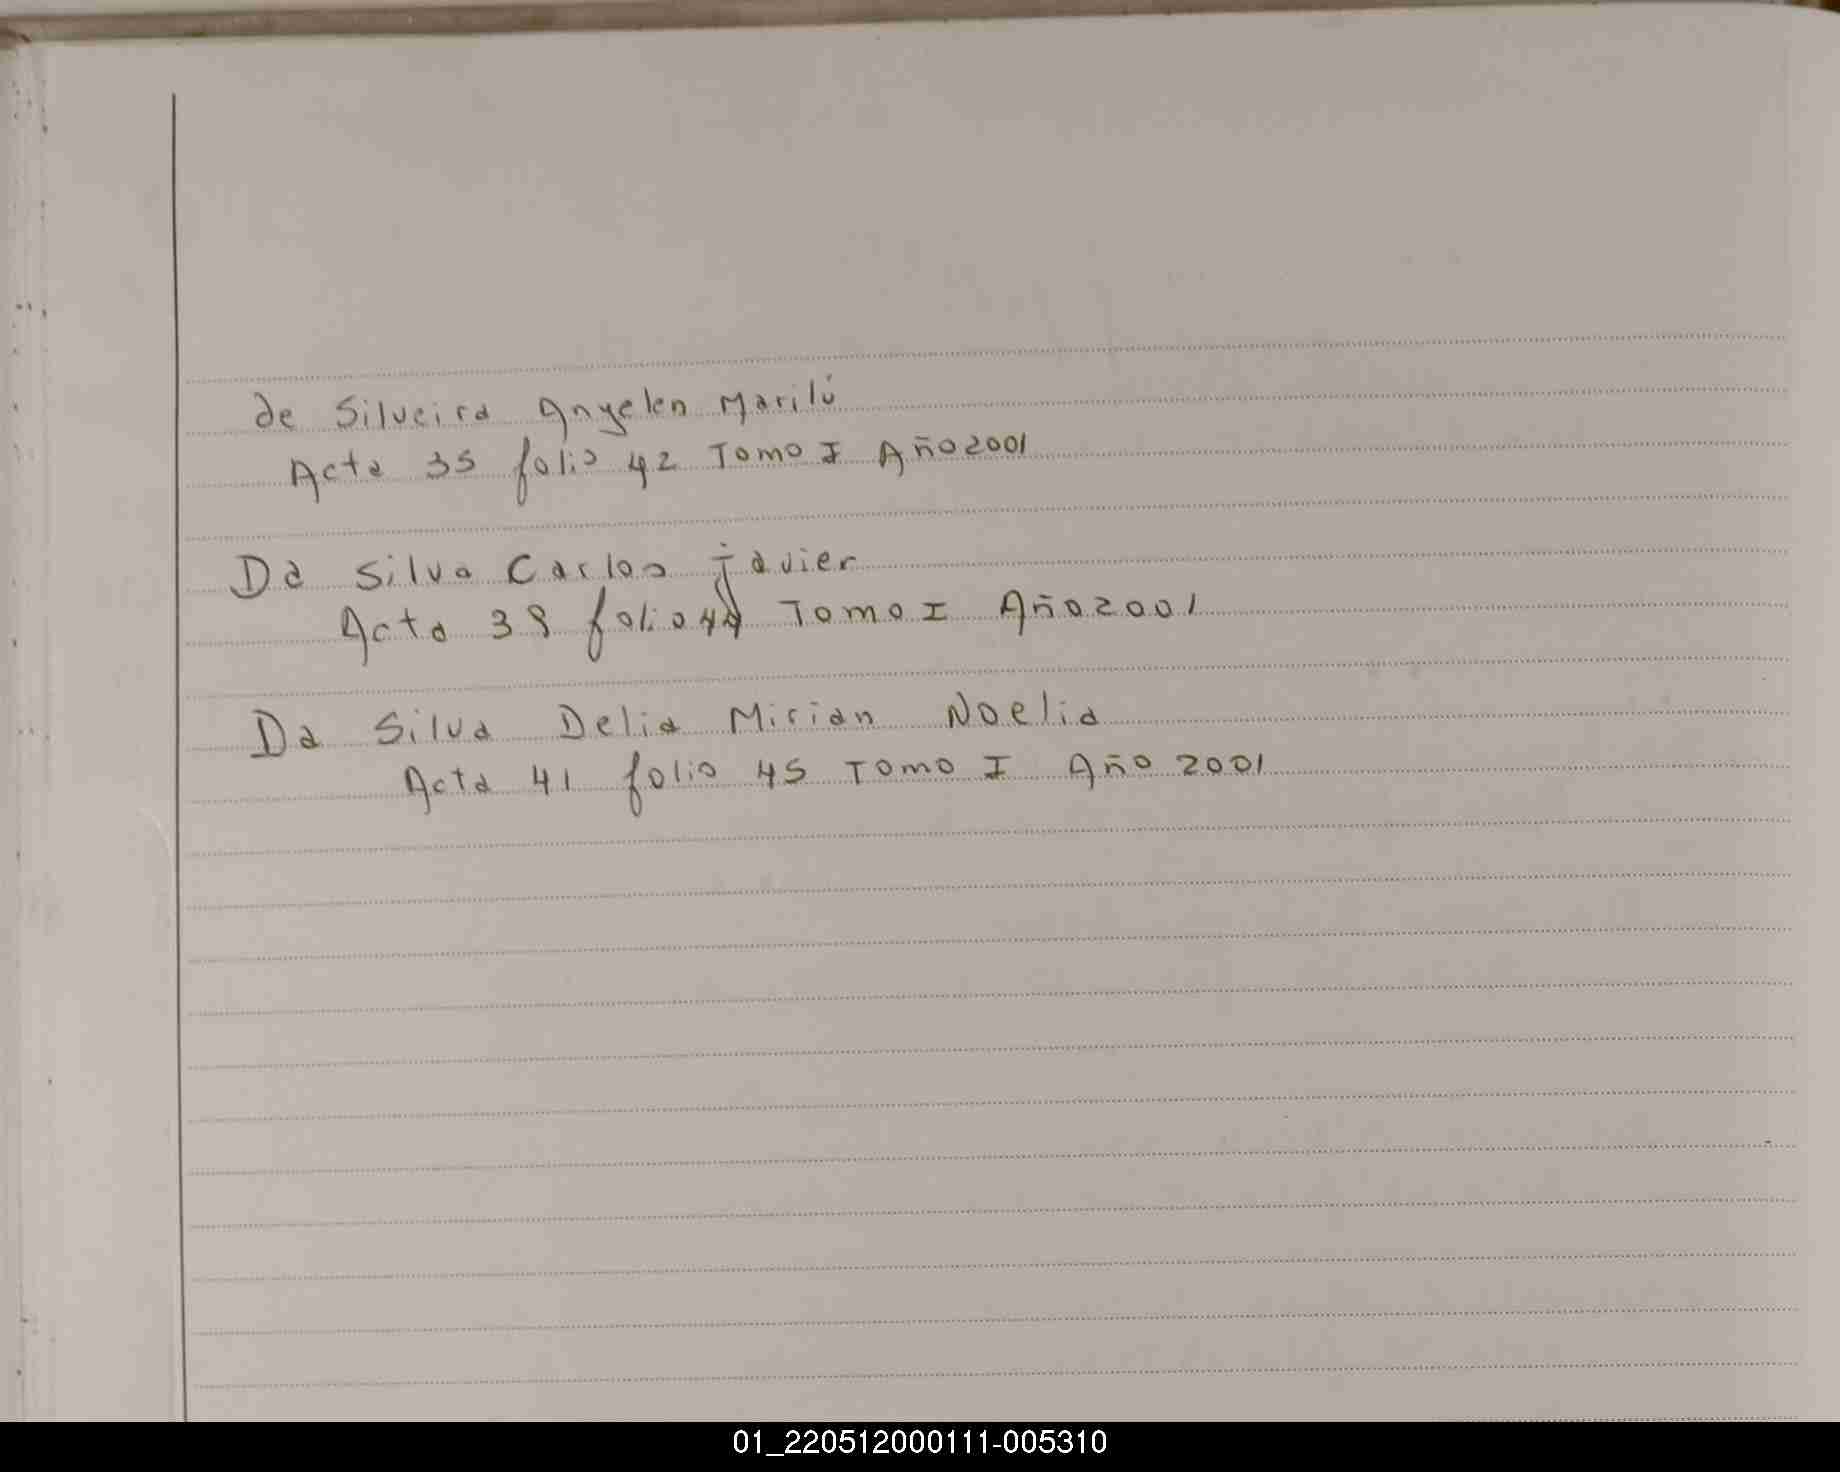 de Silveira Anyelen Marilú
Acta 35 folio 42 Tomo I Año 2001
Da Silva Carlos javier
Acta 38 folio 44 Tomo I Año 2001
Da Silva Delia Mirian Noelia
Acta 41 folio 45 Tomo I Año 2001
01_220512000111-005310